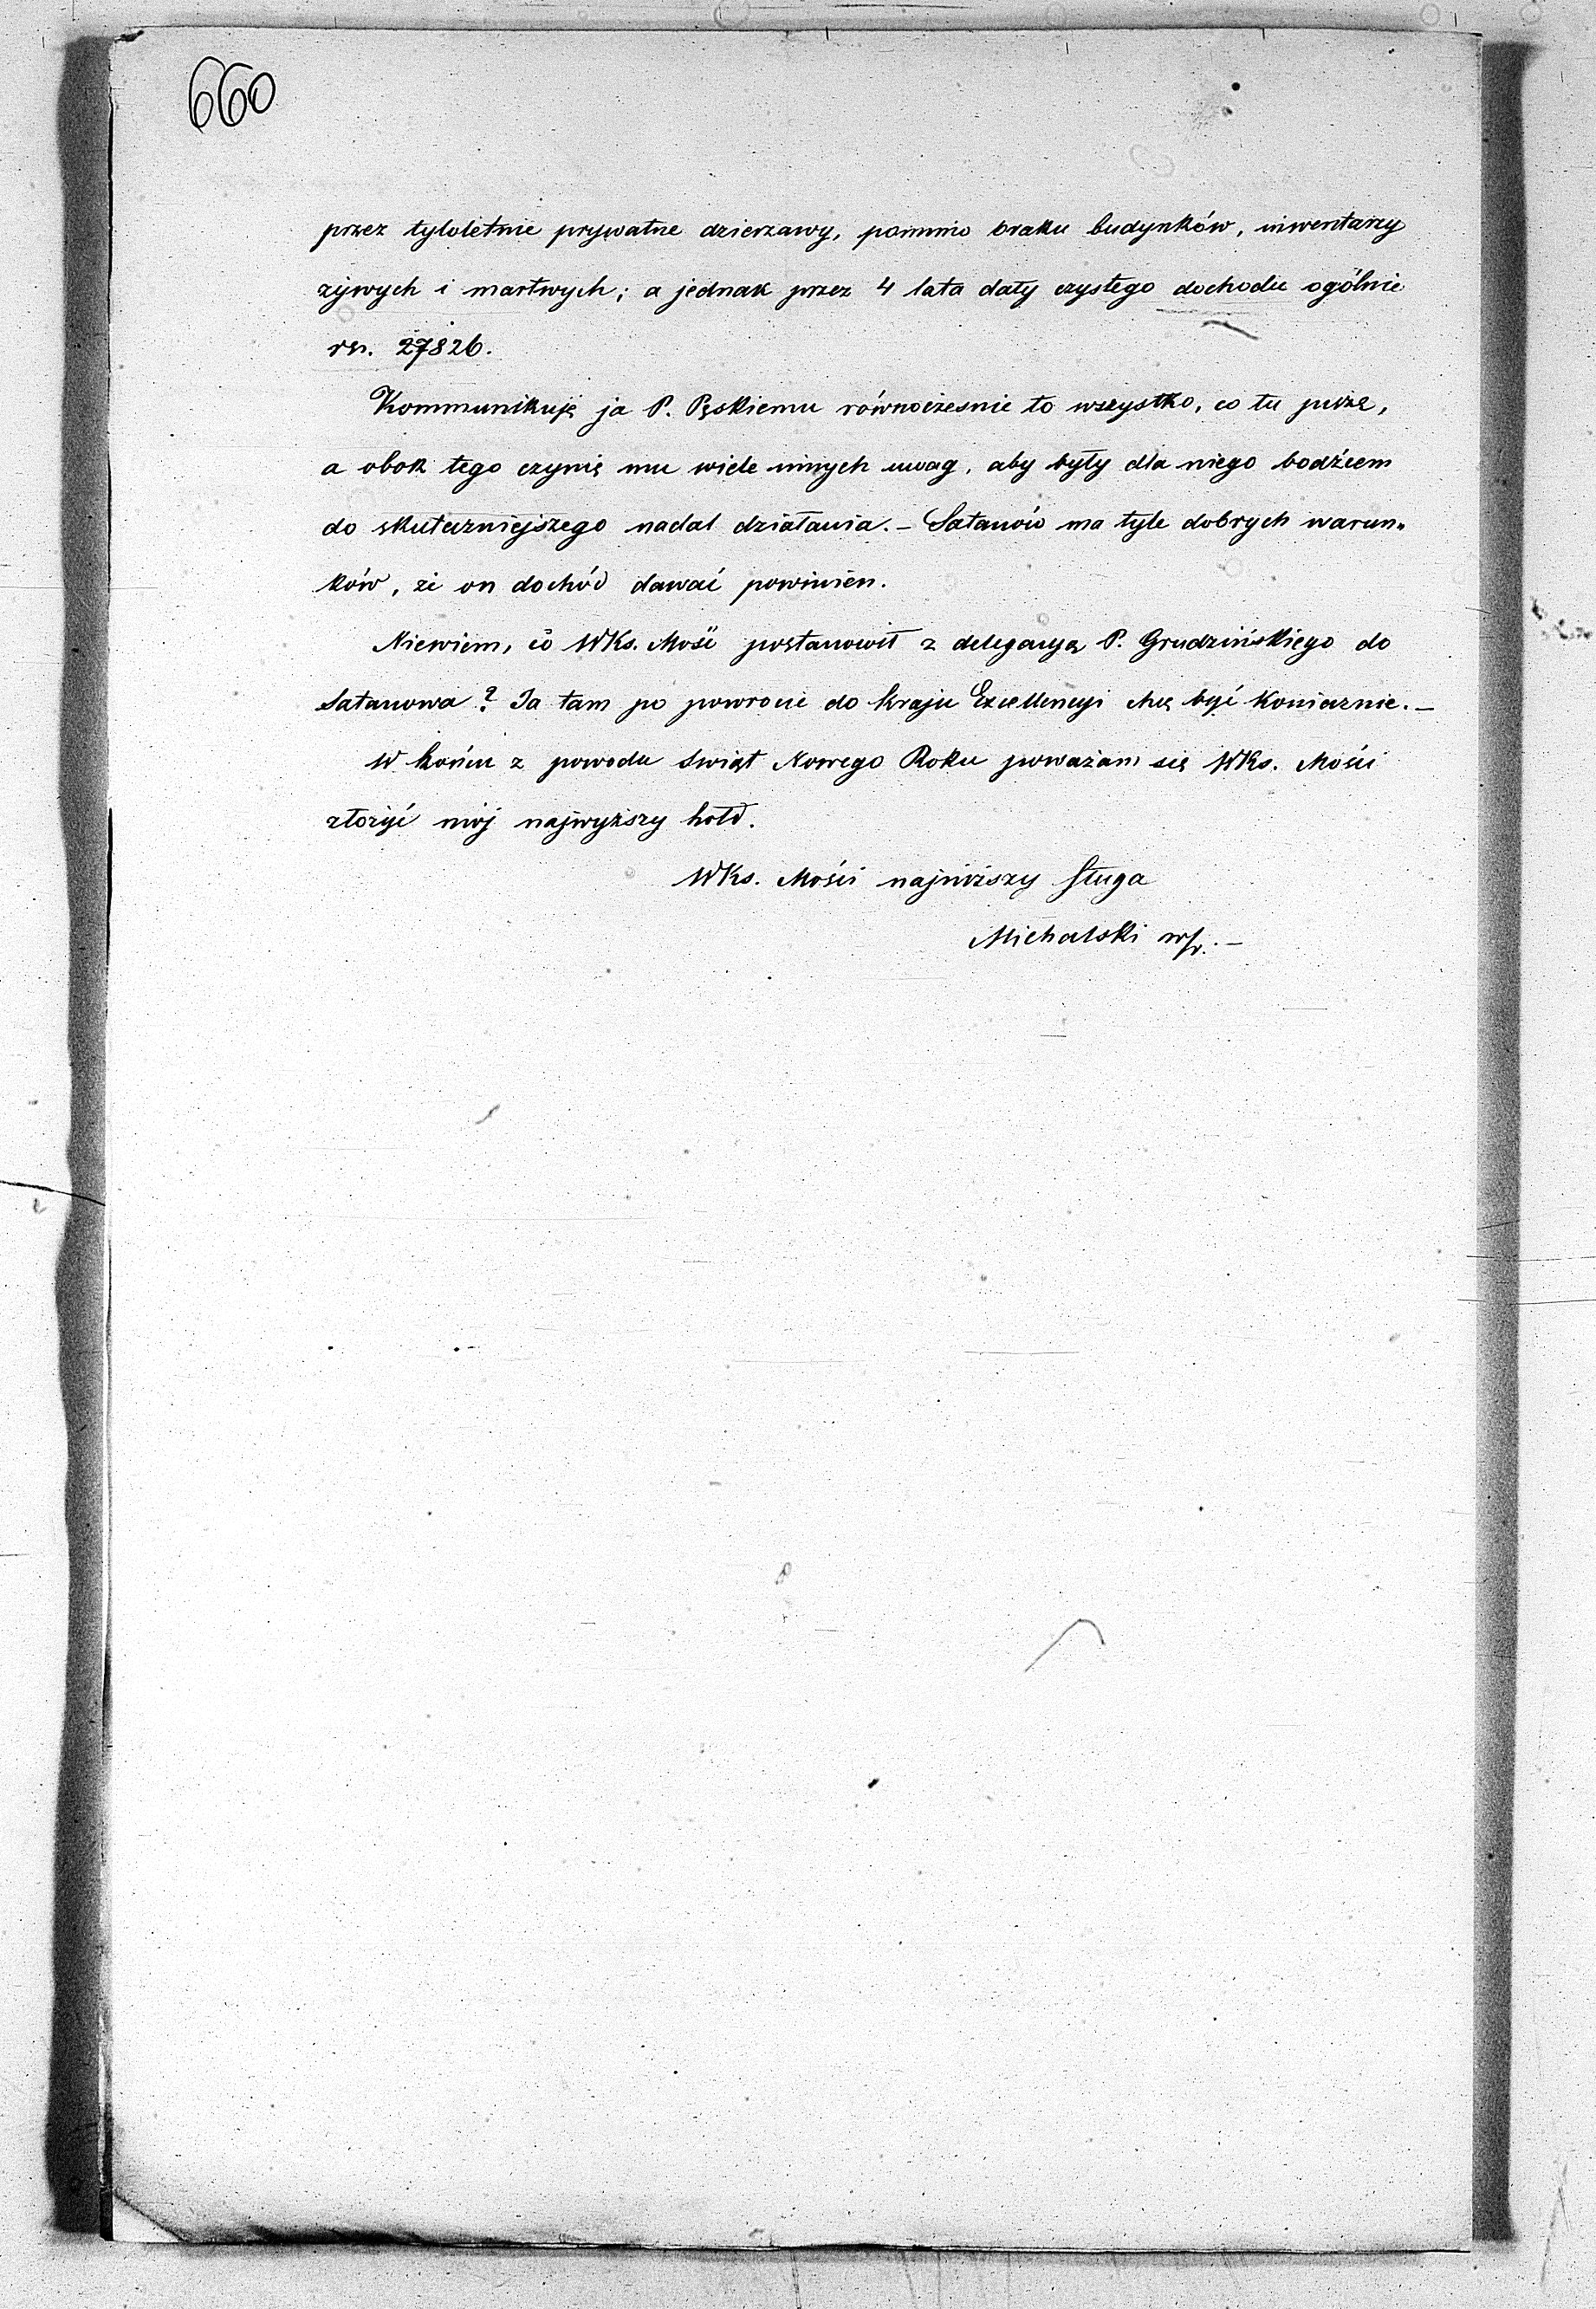 660
przez tyloletnie prywatne dzierzawy, pomimo braku budynków, inwentarzy
żywych i martwych; a jednak przez 4 lata dały czystego dochodu ogólnie
rsr. 27826.
Kommunikuję ja P. Pęskiemu równocześnie to wszystko, co tu piszę,
a obok tego czynię mu wiele innych uwag, aby były dla niego bodźcem
do skuteczniejszego nadal działania. – Satanów ma tyle dobrych warun„
ków, że on dochód dawać powinien.
Niewiem, co WKs. Mość postanowił z delegacyą P. Grudzińskiego do
Satanowa? Ja tam po powrocie do kraju Excellencyi chcę być koniecznie. –
W końcu z powodu świąt Nowego Roku poważam się WKs. Mości
złożyć mój najwyższy hołd.
WKs. Mości najniższy sługa
Michalski